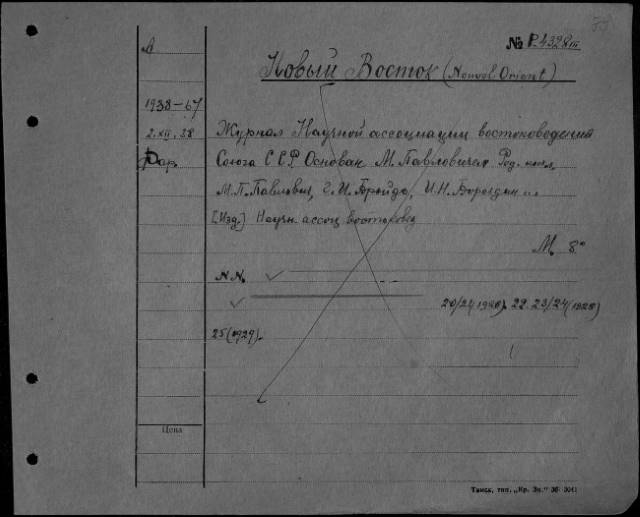 А № Р.4328 III 73
Новый Восток (Nouvel Orient)
1938-67
2.XII.38 Журнал Научной ассоциации востоковедения
Союза ССР. Основан М. Павловичем. Ред. колл,
М.П. Павлович, Г.И. Бройдо, И.Н. Бороздин
[Изд.] Научн. ассоц востоковед
М. 8°
NN.
20/21(1928). 22. 23/24(1928)
25(1929).
Цена
Томск, тип. „Кр. Зн."